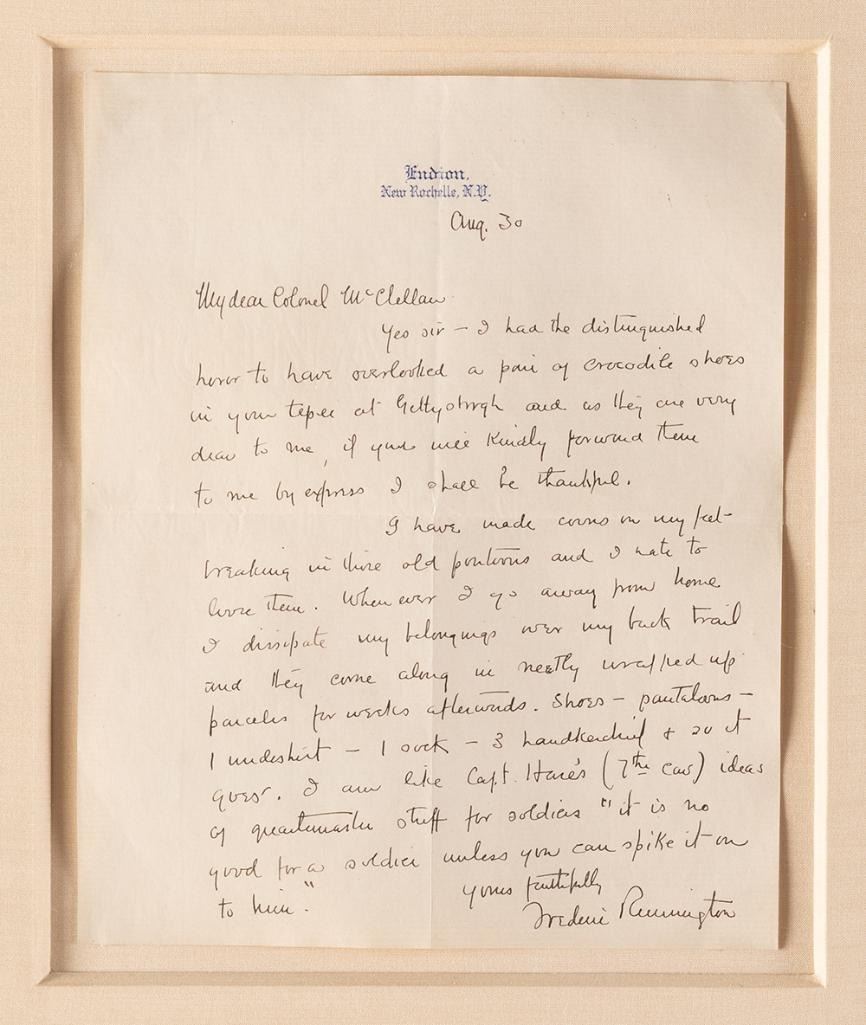 Endion,
New Rochelle, N.Y.
Aug. 30
My dear Colonel McClellan
Yes sir – I had the distinguished
honor to have overlooked a pair of crocodile shoes
in your tepee at Gettysburgh and as they are very
dear to me, if you will kindly forward them
to me by express I shall be thankful.
I have made corns on my feet
breaking in those old pontoons and I hate to
loose them. When ever I go away from home
I dissipate my belongings over my back trail
and they come along in neetly wrapped up
parcels for weeks afterwards. Shoes – pantaloons –
1 undeshirt – 1 sock – 3 handkerchief & so it
goes. I am like Capt. Hare's (7th cav) ideas
of quartermaster stuff for soldiers "it is no
good for a soldier unless you can spike it on
to him."
Yours faithfully
Frederic Remington